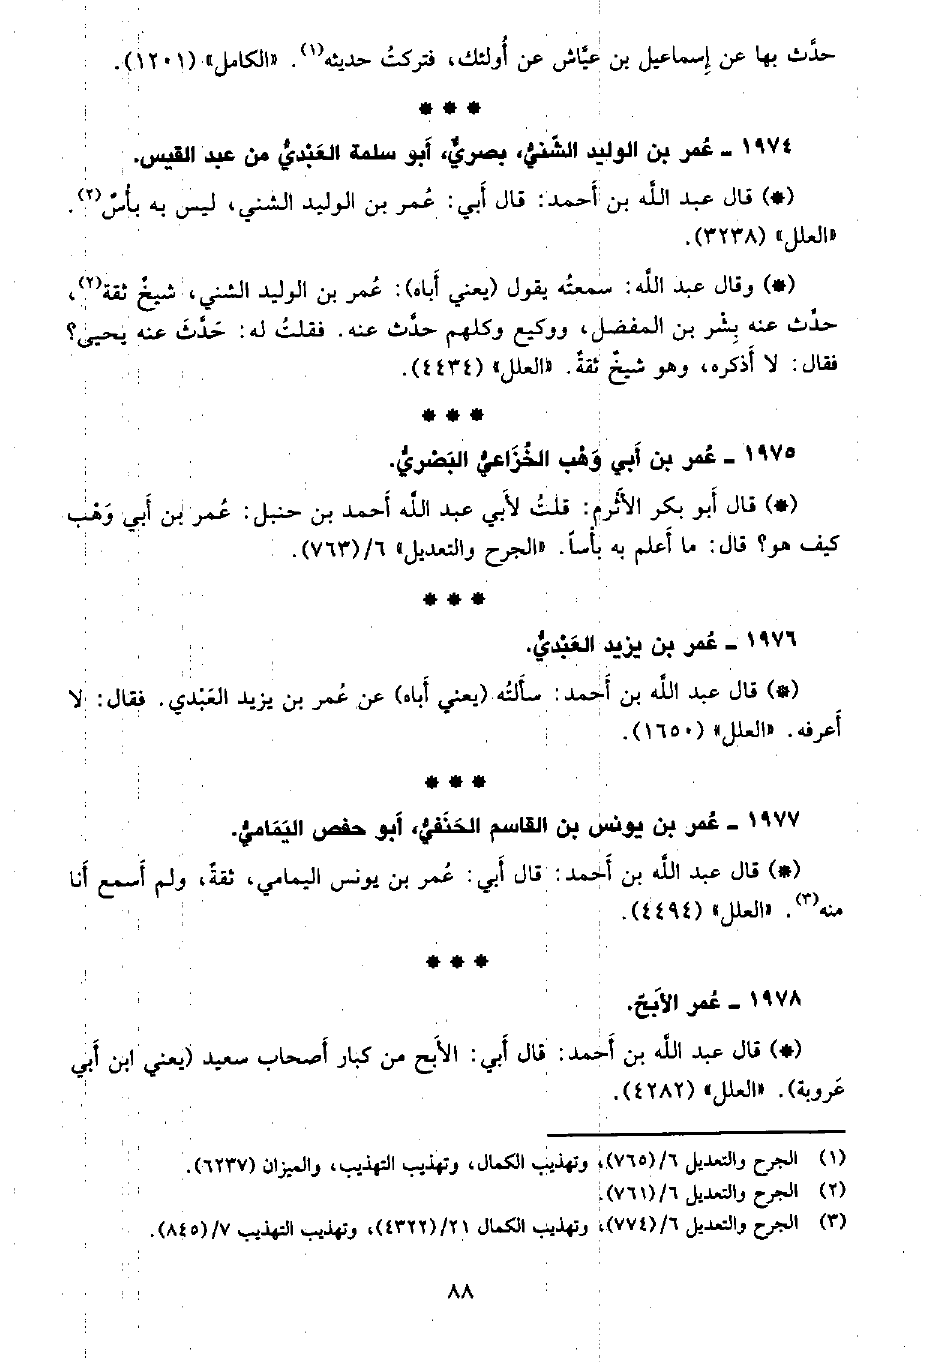 حدَّث بها عن إسماعيل بن عيَّاش عن أُولئك، فتركتُ حديثه(١). «الكامل» (١٢٠١).
***
١٩٧٤ ـ عُمر بن الوليد الشَّنيُّ، بصريٌّ، أَبو سلمة العَبْديُّ من عبد القيس.
(*) قال عبد اللَّه بن أَحمد: قال أَبي: عُمر بن الوليد الشني، ليس به بأسٌ(٢).
«العلل» (٣٢٣٨).
(*) وقال عبد اللَّه: سمعتُه يقول (يعني أَباه): عُمر بن الوليد الشني، شيخٌ ثقة(٢)،
حدَّث عنه بِشْر بن المفضل، ووكيع وكلهم حدَّث عنه. فقلتُ له: حَدَّثَ عنه يحيى؟
فقال: لا أَذكره، وهو شيخٌ ثقةٌ. «العلل» (٤٤٣٤).
***
١٩٧٥ ـ عُمر بن أَبي وَهْب الخُزَاعيُّ البَصْريُّ.
(*) قال أَبو بكر الأَثْرم: قلتُ لأَبي عبد اللَّه أَحمد بن حنبل: عُمر بن أَبي وَهْب
كيف هو؟ قال: ما أَعلم به بأْساً. «الجرح والتعديل» ٦/(٧٦٣).
***
١٩٧٦ ـ عُمر بن يزيد العَبْديُّ.
(*) قال عبد اللَّه بن أَحمد: سأَلتُه (يعني أَباه) عن عُمر بن يزيد العَبْدي. فقال: لا
أَعرفه. «العلل» (١٦٥٠).
***
١٩٧٧ ـ عُمر بن يونس بن القاسم الحَنَفيُّ، أَبو حفص اليَمَاميُّ.
(*) قال عبد اللَّه بن أَحمد: قال أَبي: عُمر بن يونس اليمامي، ثقةٌ، ولم أَسمع أَنا
منه(٣). «العلل» (٤٤٩٤).
***
١٩٧٨ ـ عُمر الأَبَحّ.
(*) قال عبد اللَّه بن أَحمد: قال أَبي: الأَبح من كبار أَصحاب سعيد (يعني ابن أَبي
عَروبة). «العلل» (٤٢٨٢).
(١) الجرح والتعديل ٦/(٧٦٥)، وتهذيب الكمال، وتهذيب التهذيب، والميزان (٦٢٣٧).
(٢) الجرح والتعديل ٦/(٧٦١).
(٣) الجرح والتعديل ٦/(٧٧٤)، وتهذيب الكمال ٢١/(٤٣٢٢)، وتهذيب التهذيب ٧/(٨٤٥).
٨٨